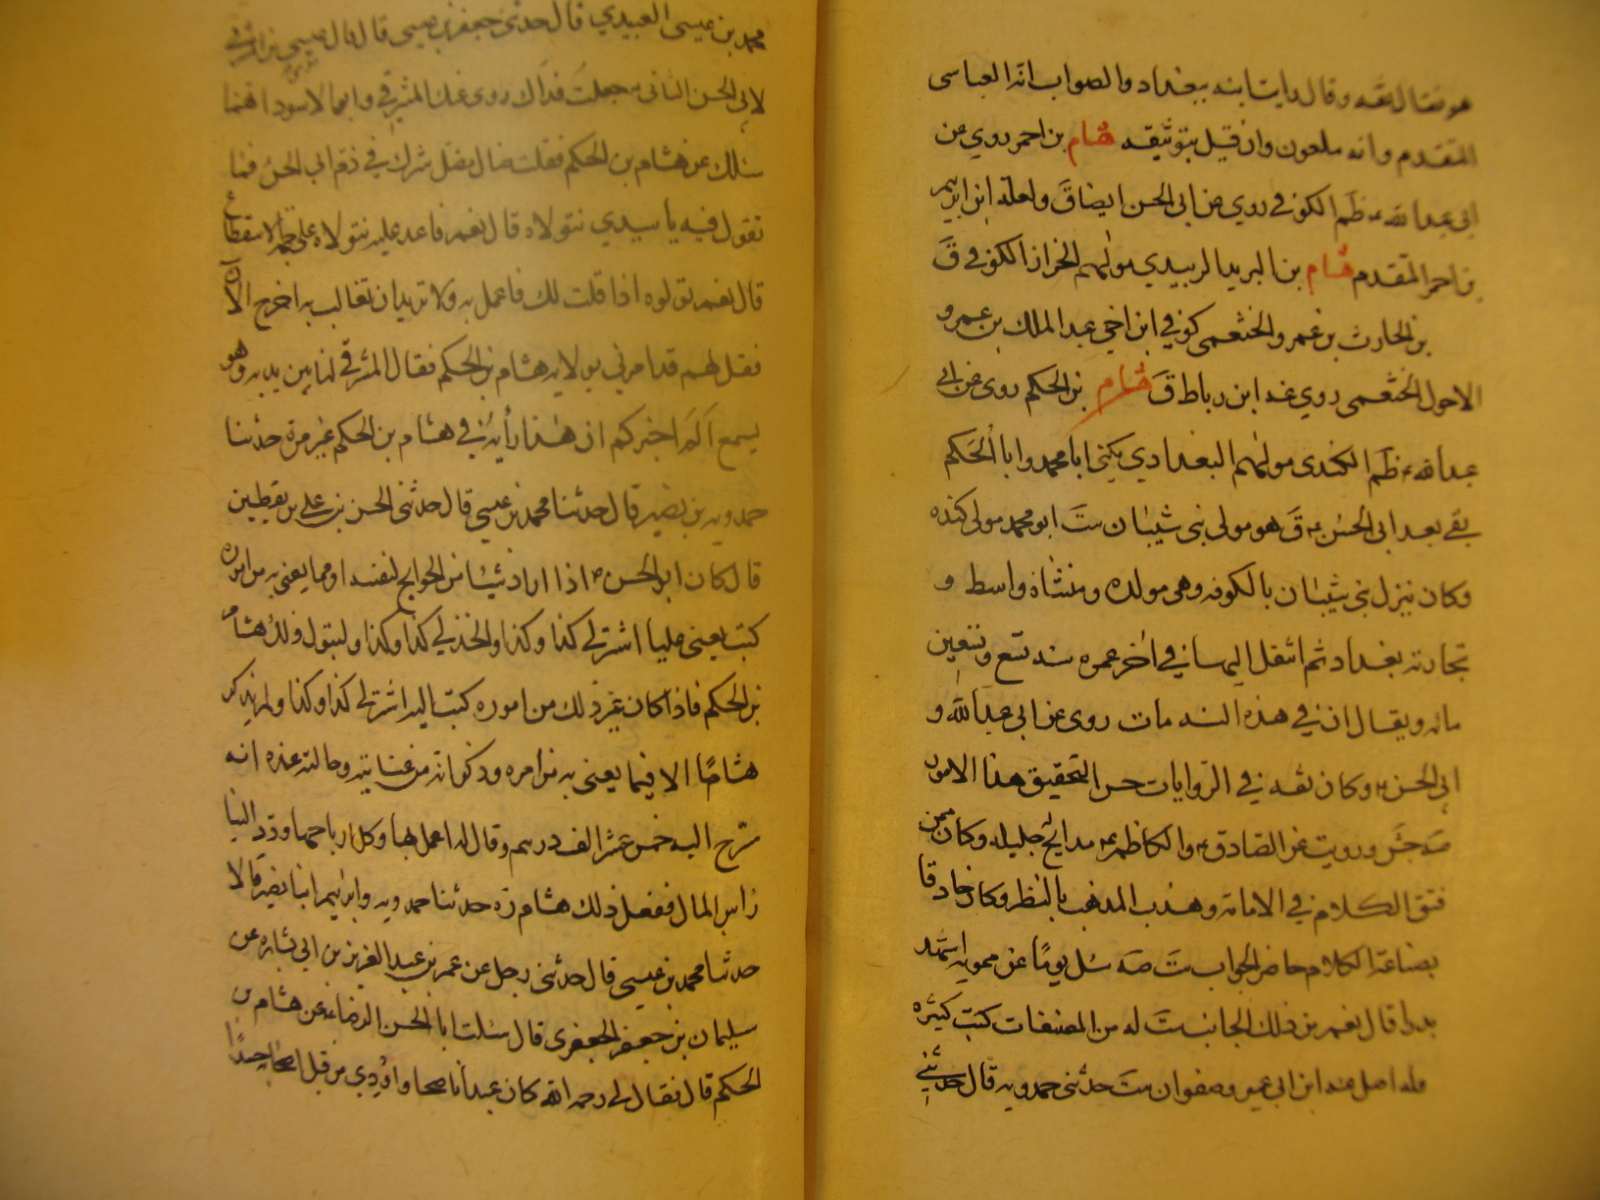 هو فقال ثقة وقال رايت ابنه ببغداد والصواب انه العباسى
المتقدم وانه ملعون وان قيل بتوثيقه هشام بن احمر روي عن
ابى عبدالله ع ظم الكوفي روي عن ابى الحسن ايضا ق ولعله ابن ابراهيم
بن احمر المتقدم هشام بن البريد الزبيدي مولاهم الخزاز الكوفي ق
بن الحارث بن عمرو الخثعمي كوفي ابن اخي عبد الملك بن عمرو
الاحول الخثعمى روي عنه ابن رباط ق هشام بن الحكم روى عن ابى
عبدالله ع ظم الكندى مولاهم البغدادي يكنى ابا محمد وابا الحكم
بقى بعد ابى الحسن ع ق هو مولى بنى شيبان ست ابو محمد مولى كنده
وكان ينزل بنى شيبان بالكوفه وهى مولده ومنشاه واسط و
تجارته بغداد ثم انتقل اليها في اخر عمره سنة تسع وتسعين
مائه ويقال ان في هذه السنه مات روى عن ابى عبدالله و
ابى الحسن ع وكان ثقه في الروايات حسن التحقيق هذا الامور
صه جش ورويت عن الصادق ع والكاظم ع مدايح جليله وكان ممن
فتق الكلام في الامامة وهذب المذهب بالنظر وكان حاذقا
بصناعة الكلام حاضر الجواب ست صه سئل يوما عن معويه اشهد
بدرا قال نعم من ذلك الجانب ست له من المصنفات كتب كثيره
وله اصل عنه ابن ابى عمير وصفوان ست حدثنى حمدويه قال حدثني
محمد بن عيسى العبيدي قال حدثنى جعفر بن عيسى قال قال عيسى بن المشرقي
لابى الحسن الثانى ع جعلت فداك روى عنك المشرقي وابو الاسود انهما
سئلاك عن هشام بن الحكم فقلت ضال مضل شرك في دم ابى الحسن فما
تقول فيه يا سيدي نتولاه قال نعم فاعد عليه نتولاه على جهة الاستقطاع
قال نعم تولوه اذا قلت لك فاعمل به ولا تريد ان تغالب به اخرج الان
فقل لهم قد امرنى بولاية هشام بن الحكم فقال المشرقي لنا بين يديه وهو
يسمع الم اخبركم ان هذا رأيه في هشام بن الحكم غير مرة حدثنا
حمدويه بن نصير قال حدثنا محمد بن عيسى قال حدثنى الحسن بن علي بن يقطين
قال كان ابو الحسن ع اذا اراد شيئا من الحوايج لنفسه او مما يعنى به من اموره
كتب يعنى عليا اشتر لي كذا وكذا واتخذ لي كذا وكذا وليتول ذلك هشام
بن الحكم فاذا كان غير ذلك من اموره كتب اليه اشتر لى كذا وكذا ولم يذكر
هشاما الا فيما يعنى به من امره وذكر انه من عنايته وحالته عنده انه
سرح اليه خمس عشر الف درهم وقال له اعمل بها وكل ارباحها ورد الينا
راس المال ففعل ذلك هشام ره حدثنا حمدويه وابراهيم ابنا نصير قالا
حدثنا محمد بن عيسى قال حدثنى رجل عن عمر بن عبد العزيز بن ابى بشار عن
سليمان بن جعفر الجعفرى قال سئلت ابا الحسن الرضا ع عن هشام بن
الحكم قال فقال لي رحمه الله كان عبدا ناصحا واوذي من قبل اصحابه حسدا